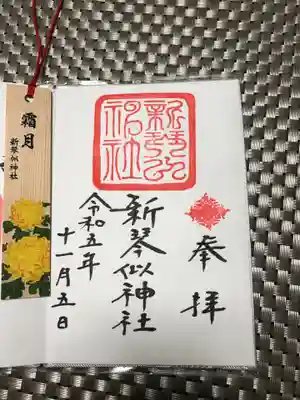 奉拝
新琴似神社
新琴似神社
令和五年
十一月五日
霜月
新琴似神社